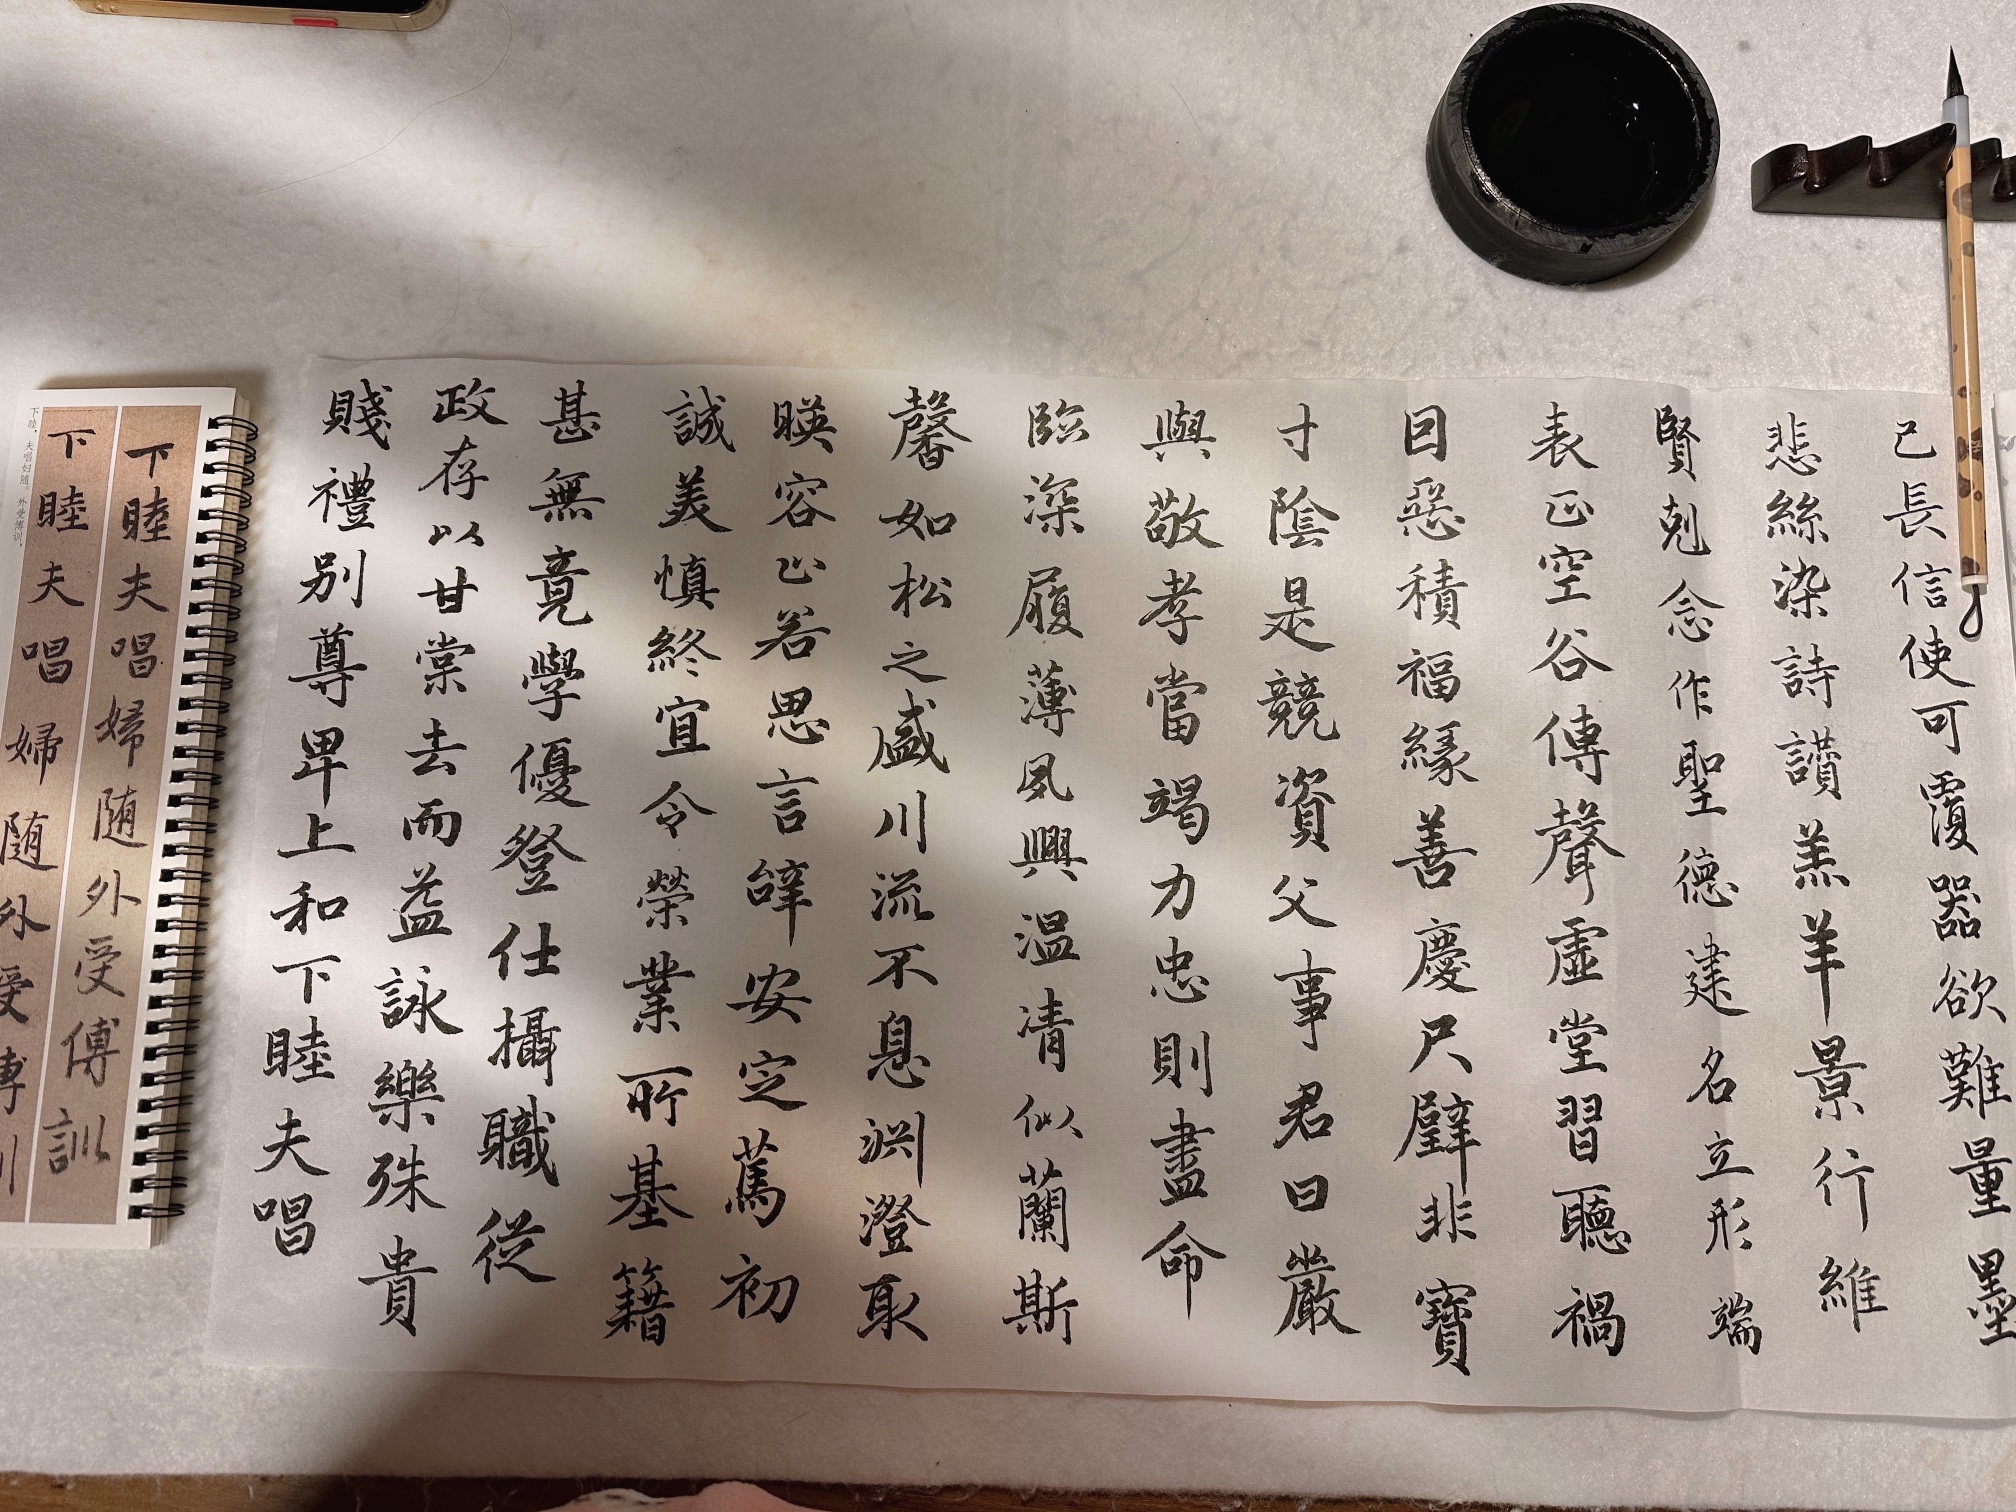 己長信使可覆器欲難量墨
悲絲染詩讃羔羊景行維
賢剋念作聖德建名立形端
表正空谷傳聲虛堂習聽禍
因惡積福緣善慶尺璧非寶
寸陰是競資父事君曰嚴
與敬孝當竭力忠則盡命
臨深履薄夙興温凊似蘭斯
馨如松之盛川流不息渊澄取
暎容止若思言辝安定篤初
誠美慎終宜令榮業所基籍
甚無竟學優登仕攝職從
政存以甘棠去而益詠樂殊貴
賤禮别尊卑上和下睦夫唱
下睦夫唱婦随外受傅訓
下睦夫唱婦随外受傅訓
下睦，夫唱妇随。外受傅训，